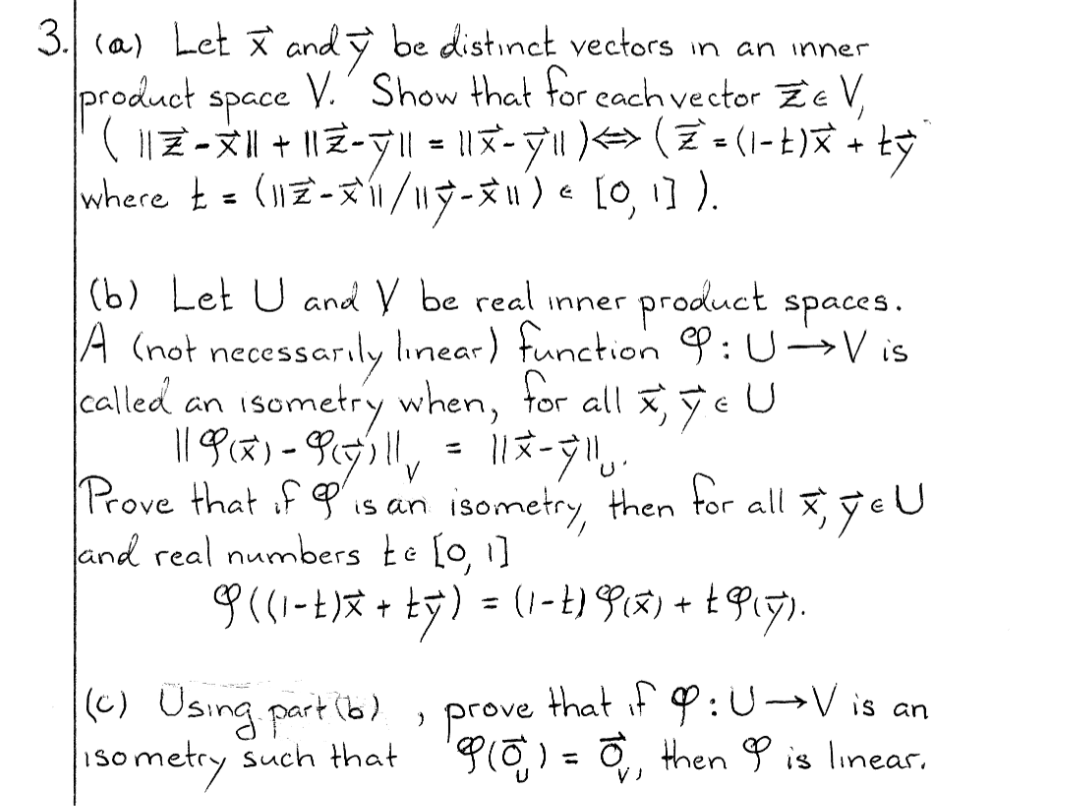 3. (a) Let x⃗ and y⃗ be distinct vectors in an inner
product space V. Show that for each vector z⃗ ∈ V,
( ||z⃗ - x⃗|| + ||z⃗ - y⃗|| = ||x⃗ - y⃗|| ) ⟺ ( z⃗ = (1-t)x⃗ + ty⃗
where t = (||z⃗ - x⃗|| / ||y⃗ - x⃗||) ∈ [0, 1] ).
(b) Let U and V be real inner product spaces.
A (not necessarily linear) function φ : U → V is
called an isometry when, for all x⃗, y⃗ ∈ U
||φ(x⃗) - φ(y⃗)||_V = ||x⃗ - y⃗||_U.
Prove that if φ is an isometry, then for all x⃗, y⃗ ∈ U
and real numbers t ∈ [0, 1]
φ((1-t)x⃗ + ty⃗) = (1-t)φ(x⃗) + tφ(y⃗).
(c) Using part (b) , prove that if φ : U → V is an
isometry such that φ(0⃗_U) = 0⃗_V, then φ is linear.